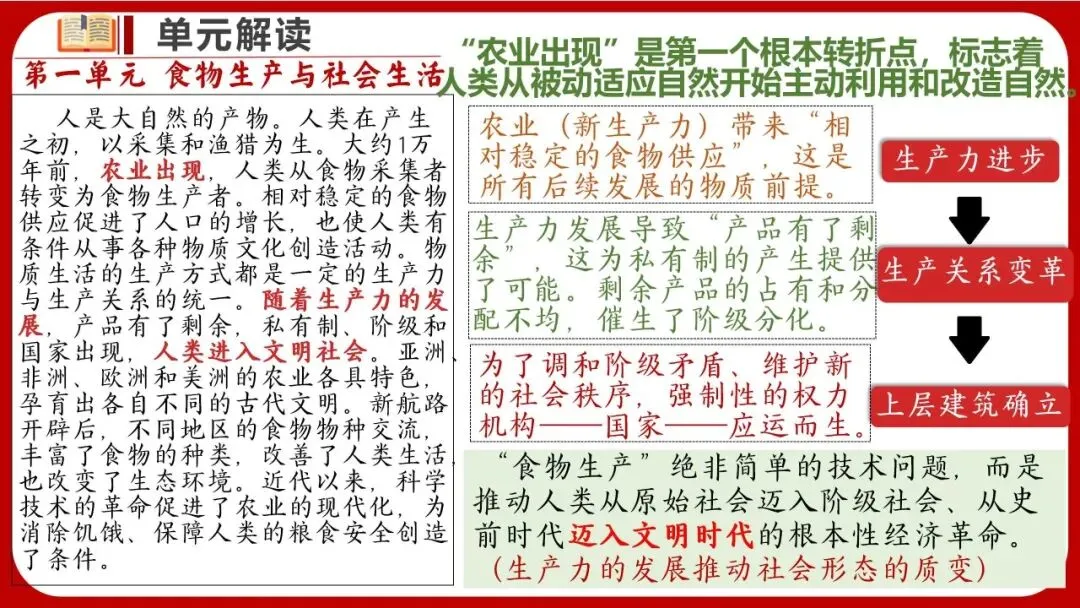 单元解读
第一单元 食物生产与社会生活
人是大自然的产物。人类在产生
之初，以采集和渔猎为生。大约1万
年前，农业出现，人类从食物采集者
转变为食物生产者。相对稳定的食物
供应促进了人口的增长，也使人类有
条件从事各种物质文化创造活动。物
质生活的生产方式都是一定的生产力
与生产关系的统一。随着生产力的发
展，产品有了剩余，私有制、阶级和
国家出现，人类进入文明社会。亚洲、
非洲、欧洲和美洲的农业各具特色，
孕育出各自不同的古代文明。新航路
开辟后，不同地区的食物物种交流，
丰富了食物的种类，改善了人类生活，
也改变了生态环境。近代以来，科学
技术的革命促进了农业的现代化，为
消除饥饿、保障人类的粮食安全创造
了条件。
“农业出现”是第一个根本转折点，标志着
人类从被动适应自然开始主动利用和改造自然。
农业（新生产力）带来“相
对稳定的食物供应”，这是
所有后续发展的物质前提。
生产力发展导致“产品有了剩
余”，这为私有制的产生提供
了可能。剩余产品的占有和分
配不均，催生了阶级分化。
为了调和阶级矛盾、维护新
的社会秩序，强制性的权力
机构——国家——应运而生。
生产力进步
生产关系变革
上层建筑确立
“食物生产”绝非简单的技术问题，而是
推动人类从原始社会迈入阶级社会、从史
前时代迈入文明时代的根本性经济革命。
（生产力的发展推动社会形态的质变）